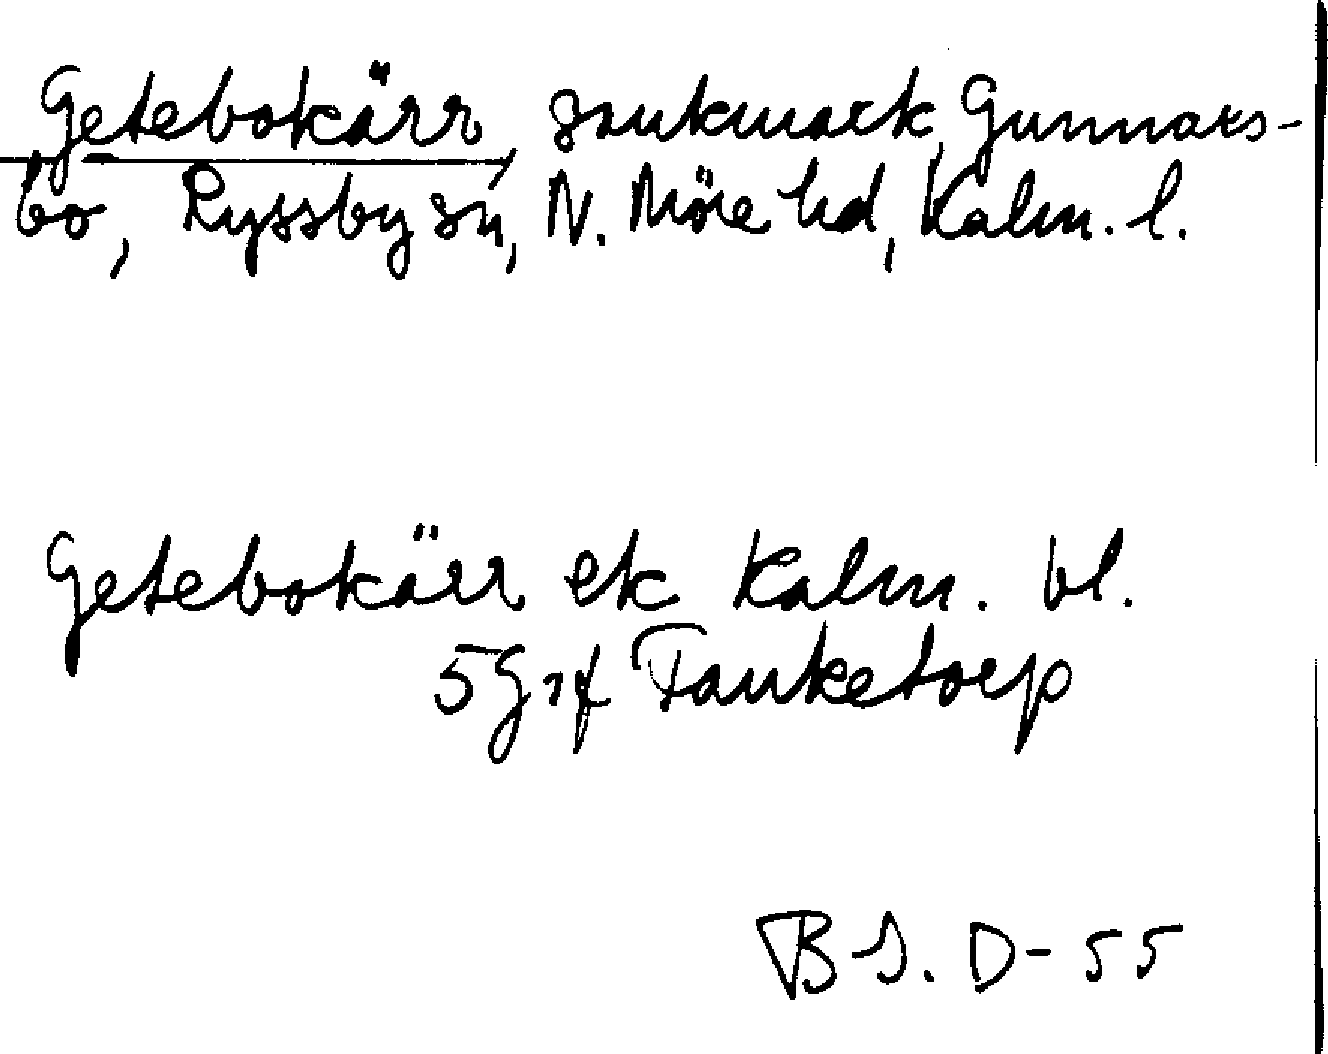 Getebokärr, sankmark, Gunnars-
bo, Ryssby sn, N. Möre hd, Kalm. l.
Getebokärr ek Kalm. bl.
5G7f Tanketorp
B-S. D-55